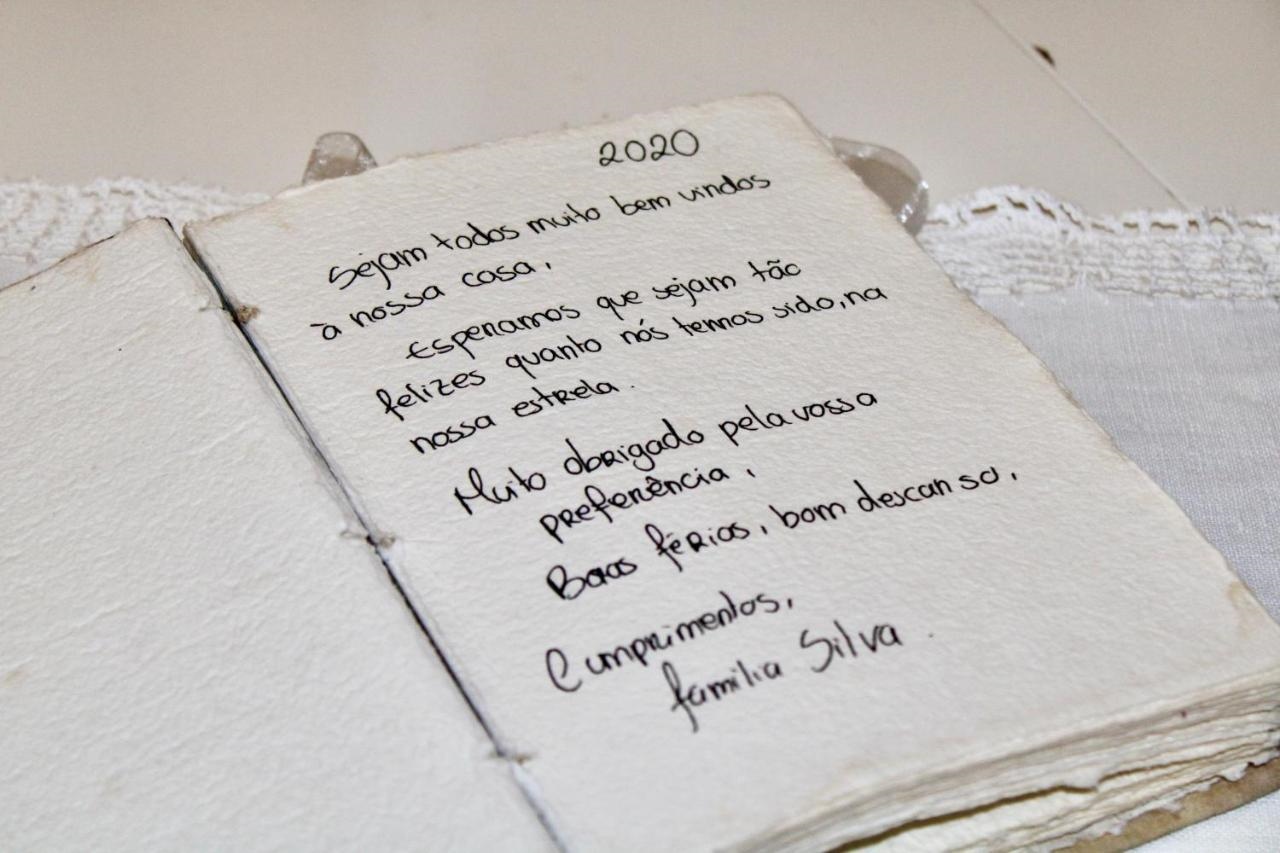 2020
Sejam todos muito bem vindos
à nossa casa,
Esperamos que sejam tão
felizes quanto nós temos sido, na
nossa estrela.
Muito obrigado pela vossa
preferência,
Boas férias, bom descanso,
Cumprimentos,
família Silva